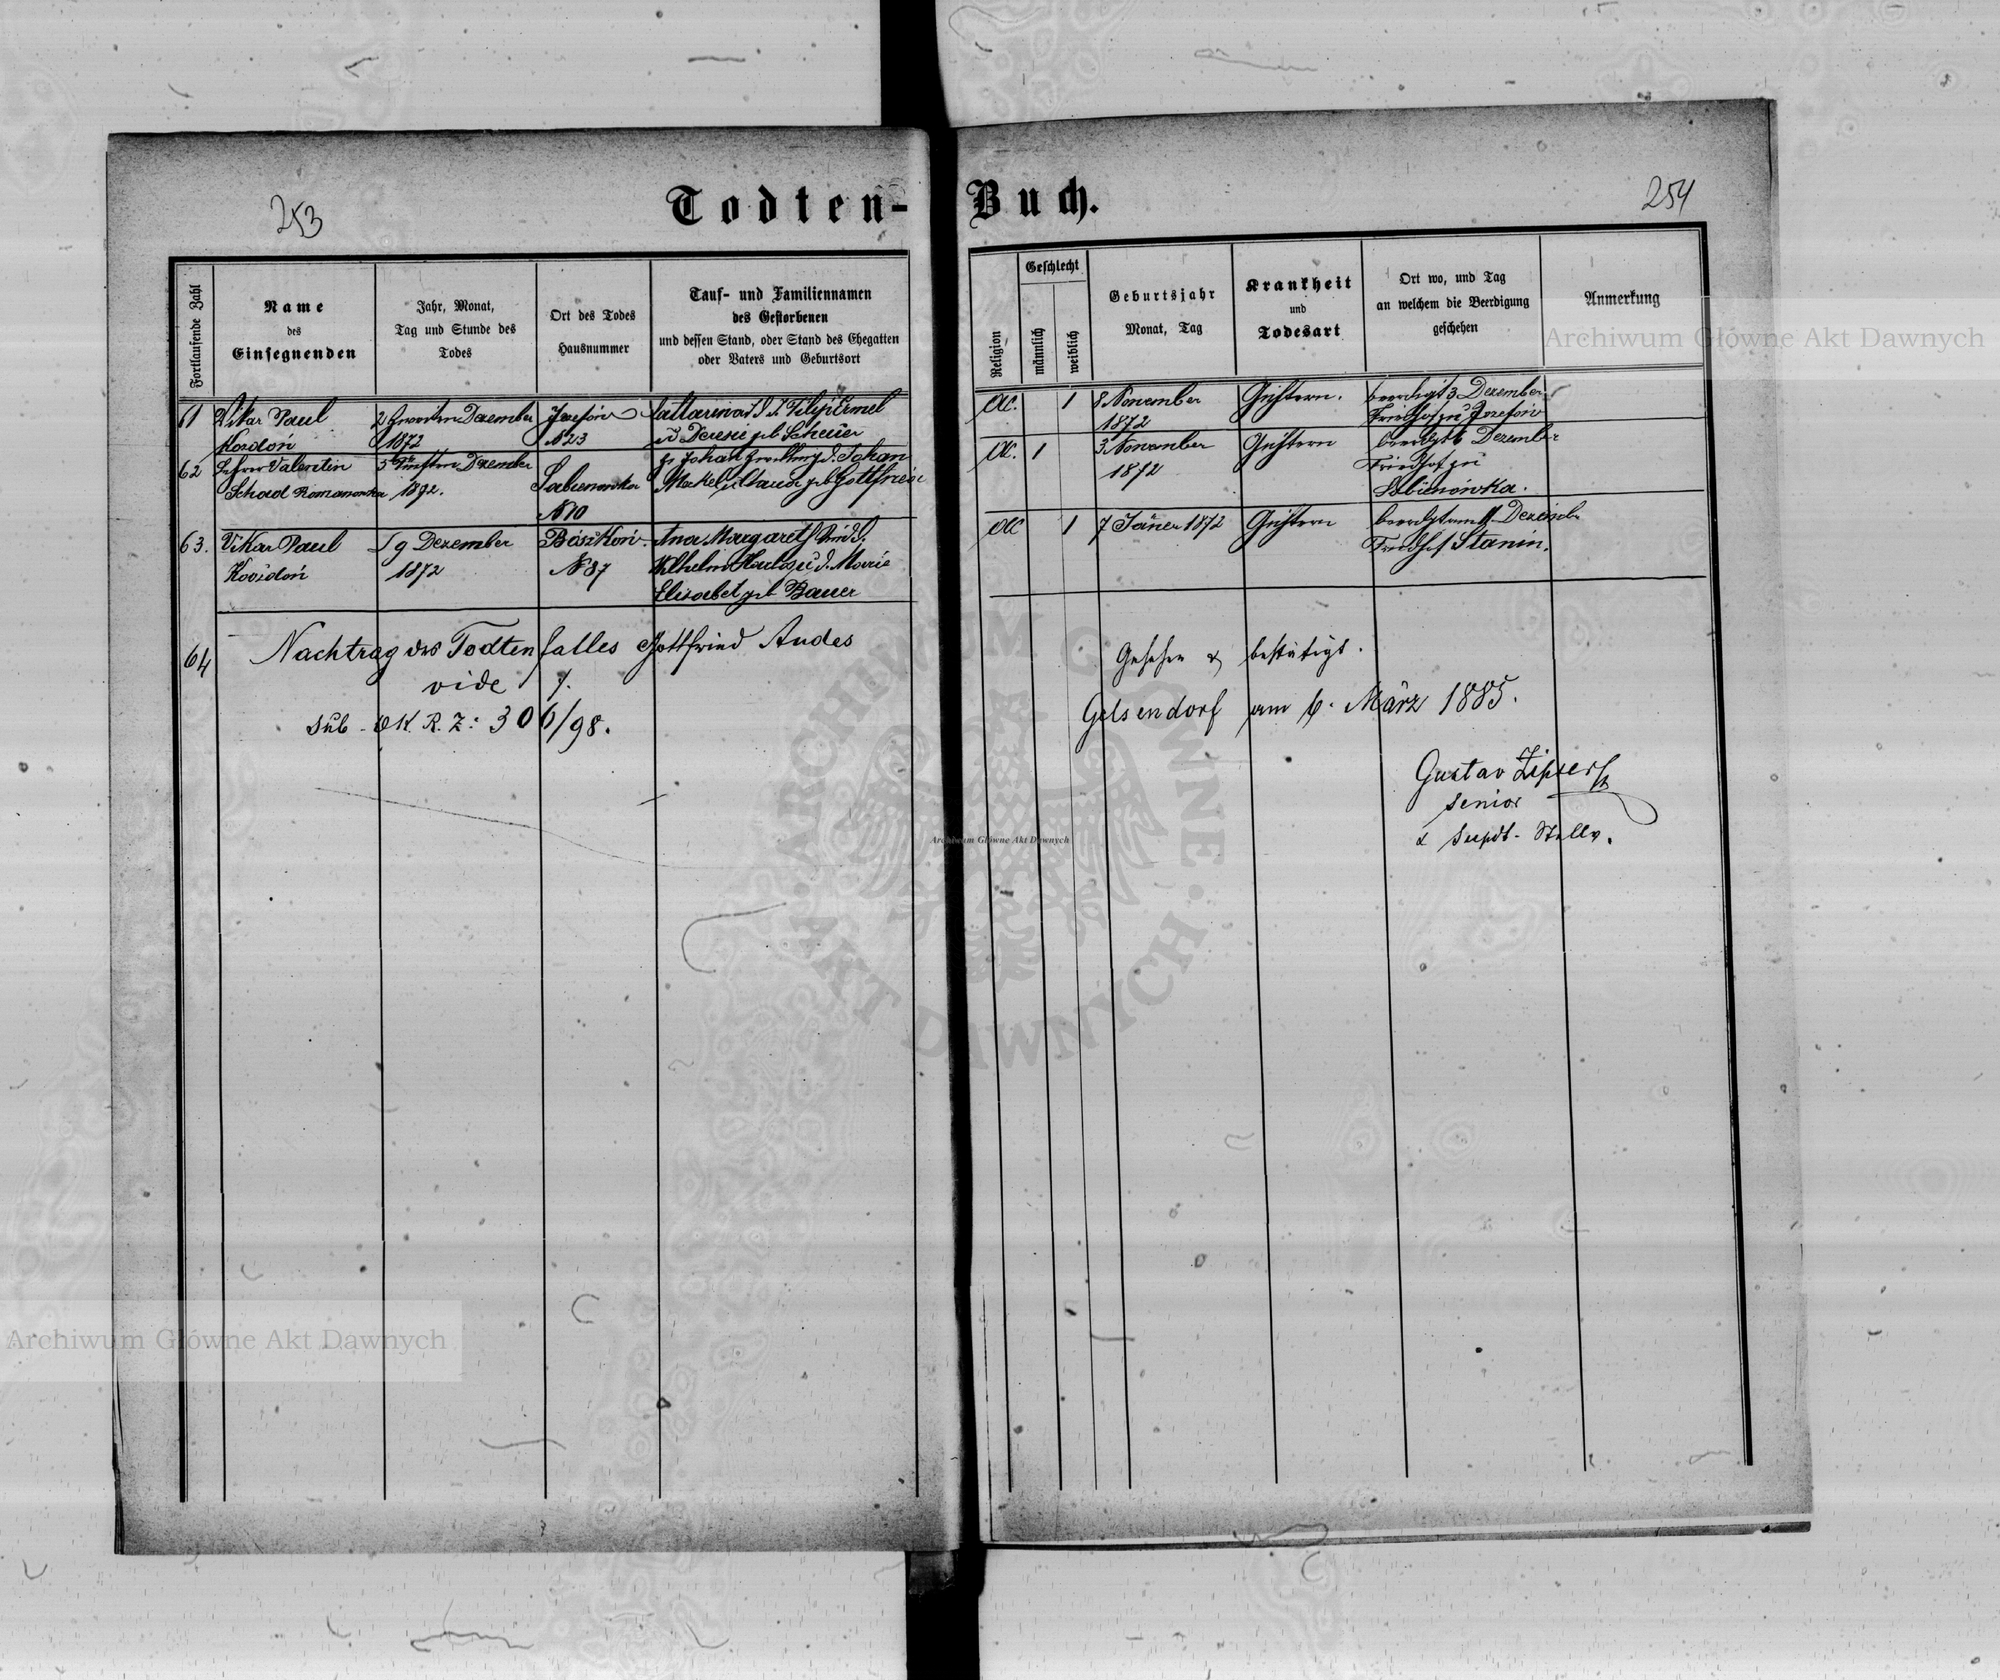 253
Todten-
Buch.
254
Fortlaufende Zahl
Name
des
Einsegnenden
Jahr, Monat,
Tag und Stunde des
Todes
Ort des Todes
Hausnummer
Tauf- und Familiennamen
des Gestorbenen
und dessen Stand, oder Stand des Ehegatten
oder Vaters und Geburtsort
Religion
Geschlecht
männlich
weiblich
Geburtsjahr
Monat, Tag
Krankheit
und
Todesart
Ort wo, und Tag
an welchem die Beerdigung
geschehen
Anmerkung
61
Vikar Paul
Kordoń
2 Zweiten Dezember
1872
Josefow
N 23
Cattarina
Filip Ermel
geb Scheuer
AC.
1
8 November
1872
beerdigt 3 Dezember
Friedhof zu Josefow
62
Lehrer Valentin
Schad Romanowka
5 Fünften Dezember
1872.
Sabienowka
N 10
Johan
geb Gottfried
AC.
1
3 November
1872
Dezember
Friedhof zu
Sabinowka.
63.
Vikar Paul
Kordoń
9 Dezember
1872
N 37
Ana Margareth
Wilhelm
Marie
Elisabet geb Bauer
AC
1
7 Jäner 1872
Dezember
Friedhof Stanin.
64
Nachtrag des Todtenfalles Gottfried Andes
vide
sub. OK. R. Z: 306/98.
Gesehen & bestätigt.
Gelsendorf am 6. März 1885.
Gustav Zipser
Senior
& Supdt. Stellv.
Archiwum Główne Akt Dawnych
Archiwum Główne Akt Dawnych
Archiwum Główne Akt Dawnych
ARCHIWUM GŁÓWNE · AKT DAWNYCH ·